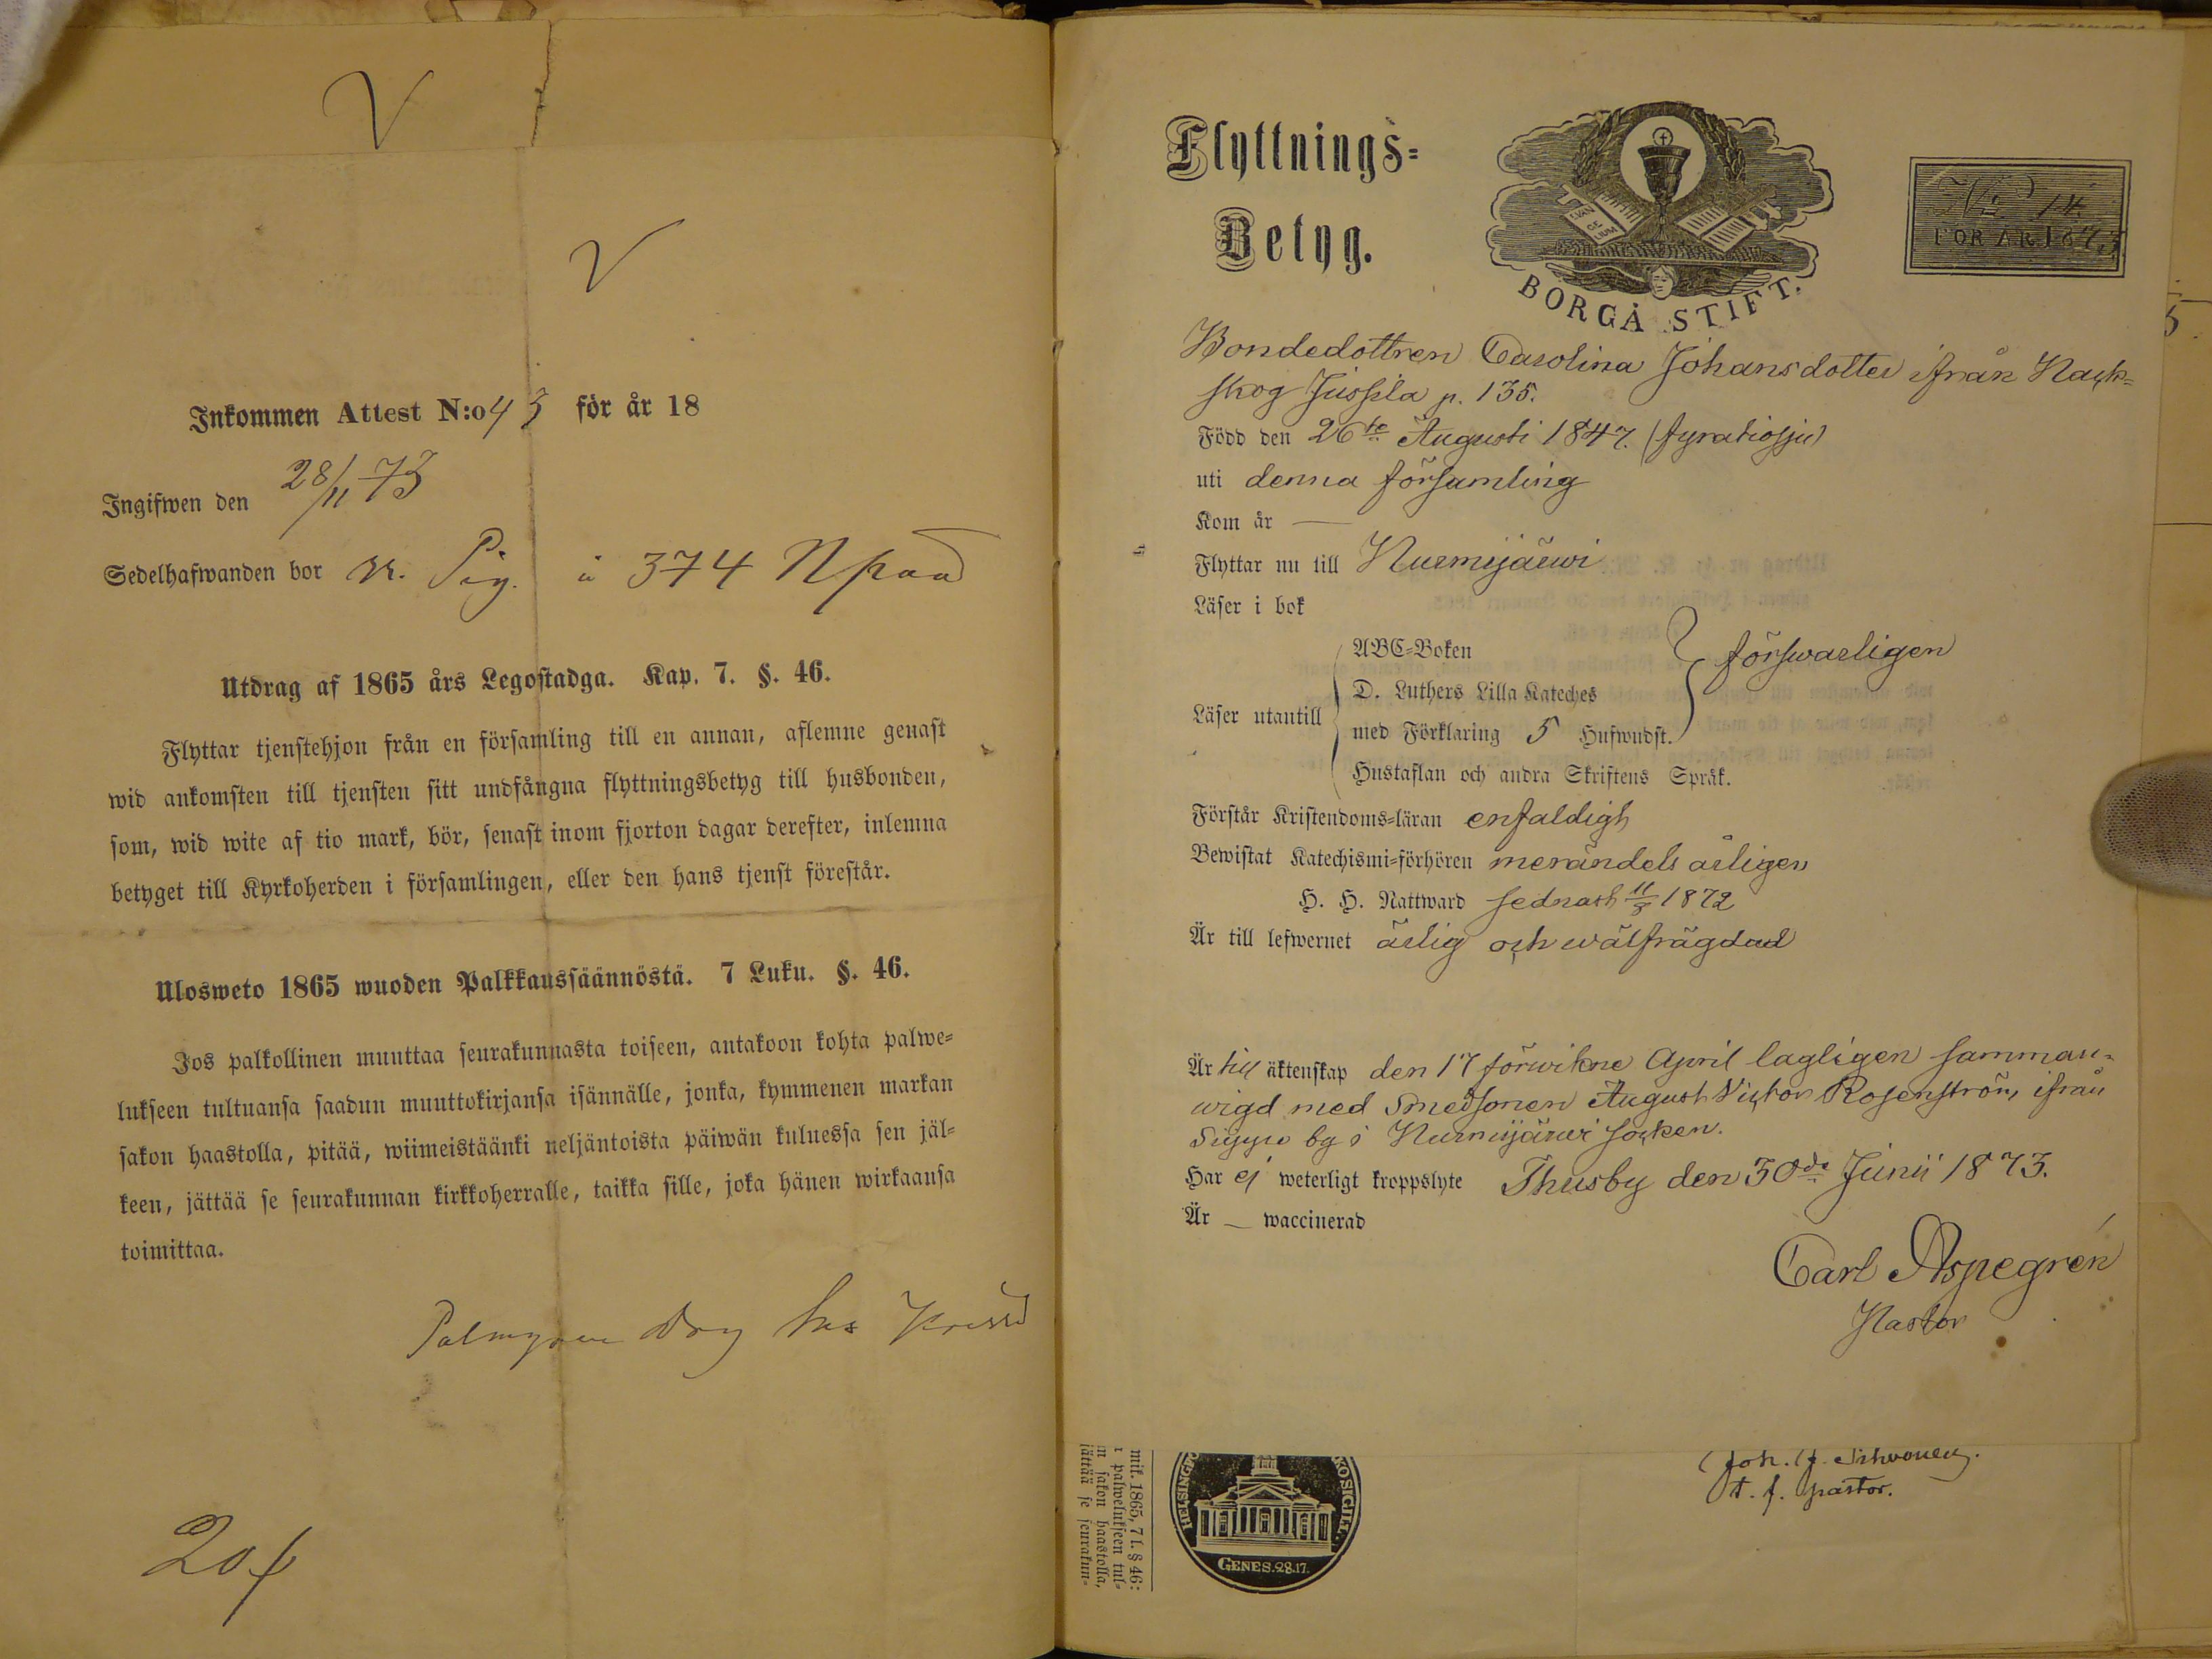 V
V
Inkommen Attest N:o 43 för år 18
Ingifwen den 28/11 73
Sedelhafwanden bor Pig. å 374
Utdrag af 1865 års Legostadga. Kap. 7. §. 46.
Flyttar tjenstehjon från en församling till en annan, aflemne genast
wid ankomsten till tjensten sitt undfångna flyttningsbetyg till husbonden,
som, wid wite af tio mark, bör, senast inom fjorton dagar derefter, inlemna
betyget till Kyrkoherden i församlingen, eller den hans tjenst förestår.
Ulosweto 1865 wuoden Palkkaussäännöstä. 7 Luku. §. 46.
Jos palkollinen muuttaa seurakunnasta toiseen, antakoon kohta palwe=
lukseen tultuansa saadun muuttokirjansa isännälle, jonka, kymmenen markan
sakon haastolla, pitää, wiimeistäänki neljäntoista päiwän kuluessa sen jäl=
keen, jättää se seurakunnan kirkkoherralle, taikka sille, joka hänen wirkaansa
toimittaa.
Flyttnings=
Betyg.
EVAN
GE
LIUM
BORGÅ STIFT.
No 14
FÖR ÅR 1873
Bondedottren Carolina Johansdotter ifrån Nack=
skog Jussila p. 135.
Född den 26te Augusti 1847. (fyratiosju)
uti denna församling
Kom år —
Flyttar nu till Nurmijärwi
Läser i bok
ABC=Boken
D. Luthers Lilla Kateches
Läser utantill
med Förklaring 5 Hufwudst.
Hustaflan och andra Skriftens Språk.
förswarligen
Förstår Kristendoms=läran enfaldigt
Bewistat Katechismi=förhören merändels årligen
H. H. Nattward sednast 11/3 1872
Är till lefwernet ärlig och wälfrägdad
Är till äktenskap den 17 förwikne April lagligen samman=
wigd med Smedsonen August Victor Rosenström ifrån
by i Nurmijärwi socken.
Har ej weterligt kroppslyte Thusby den 30de Junii 1873.
Är — waccinerad
Carl Aspegrén
Pastor
mik. 1865, 7 l. § 46:
palwelukseen tul=
sakon haastolla,
jättää se seurakun=
GENES. 28.17.
t. f. pastor.